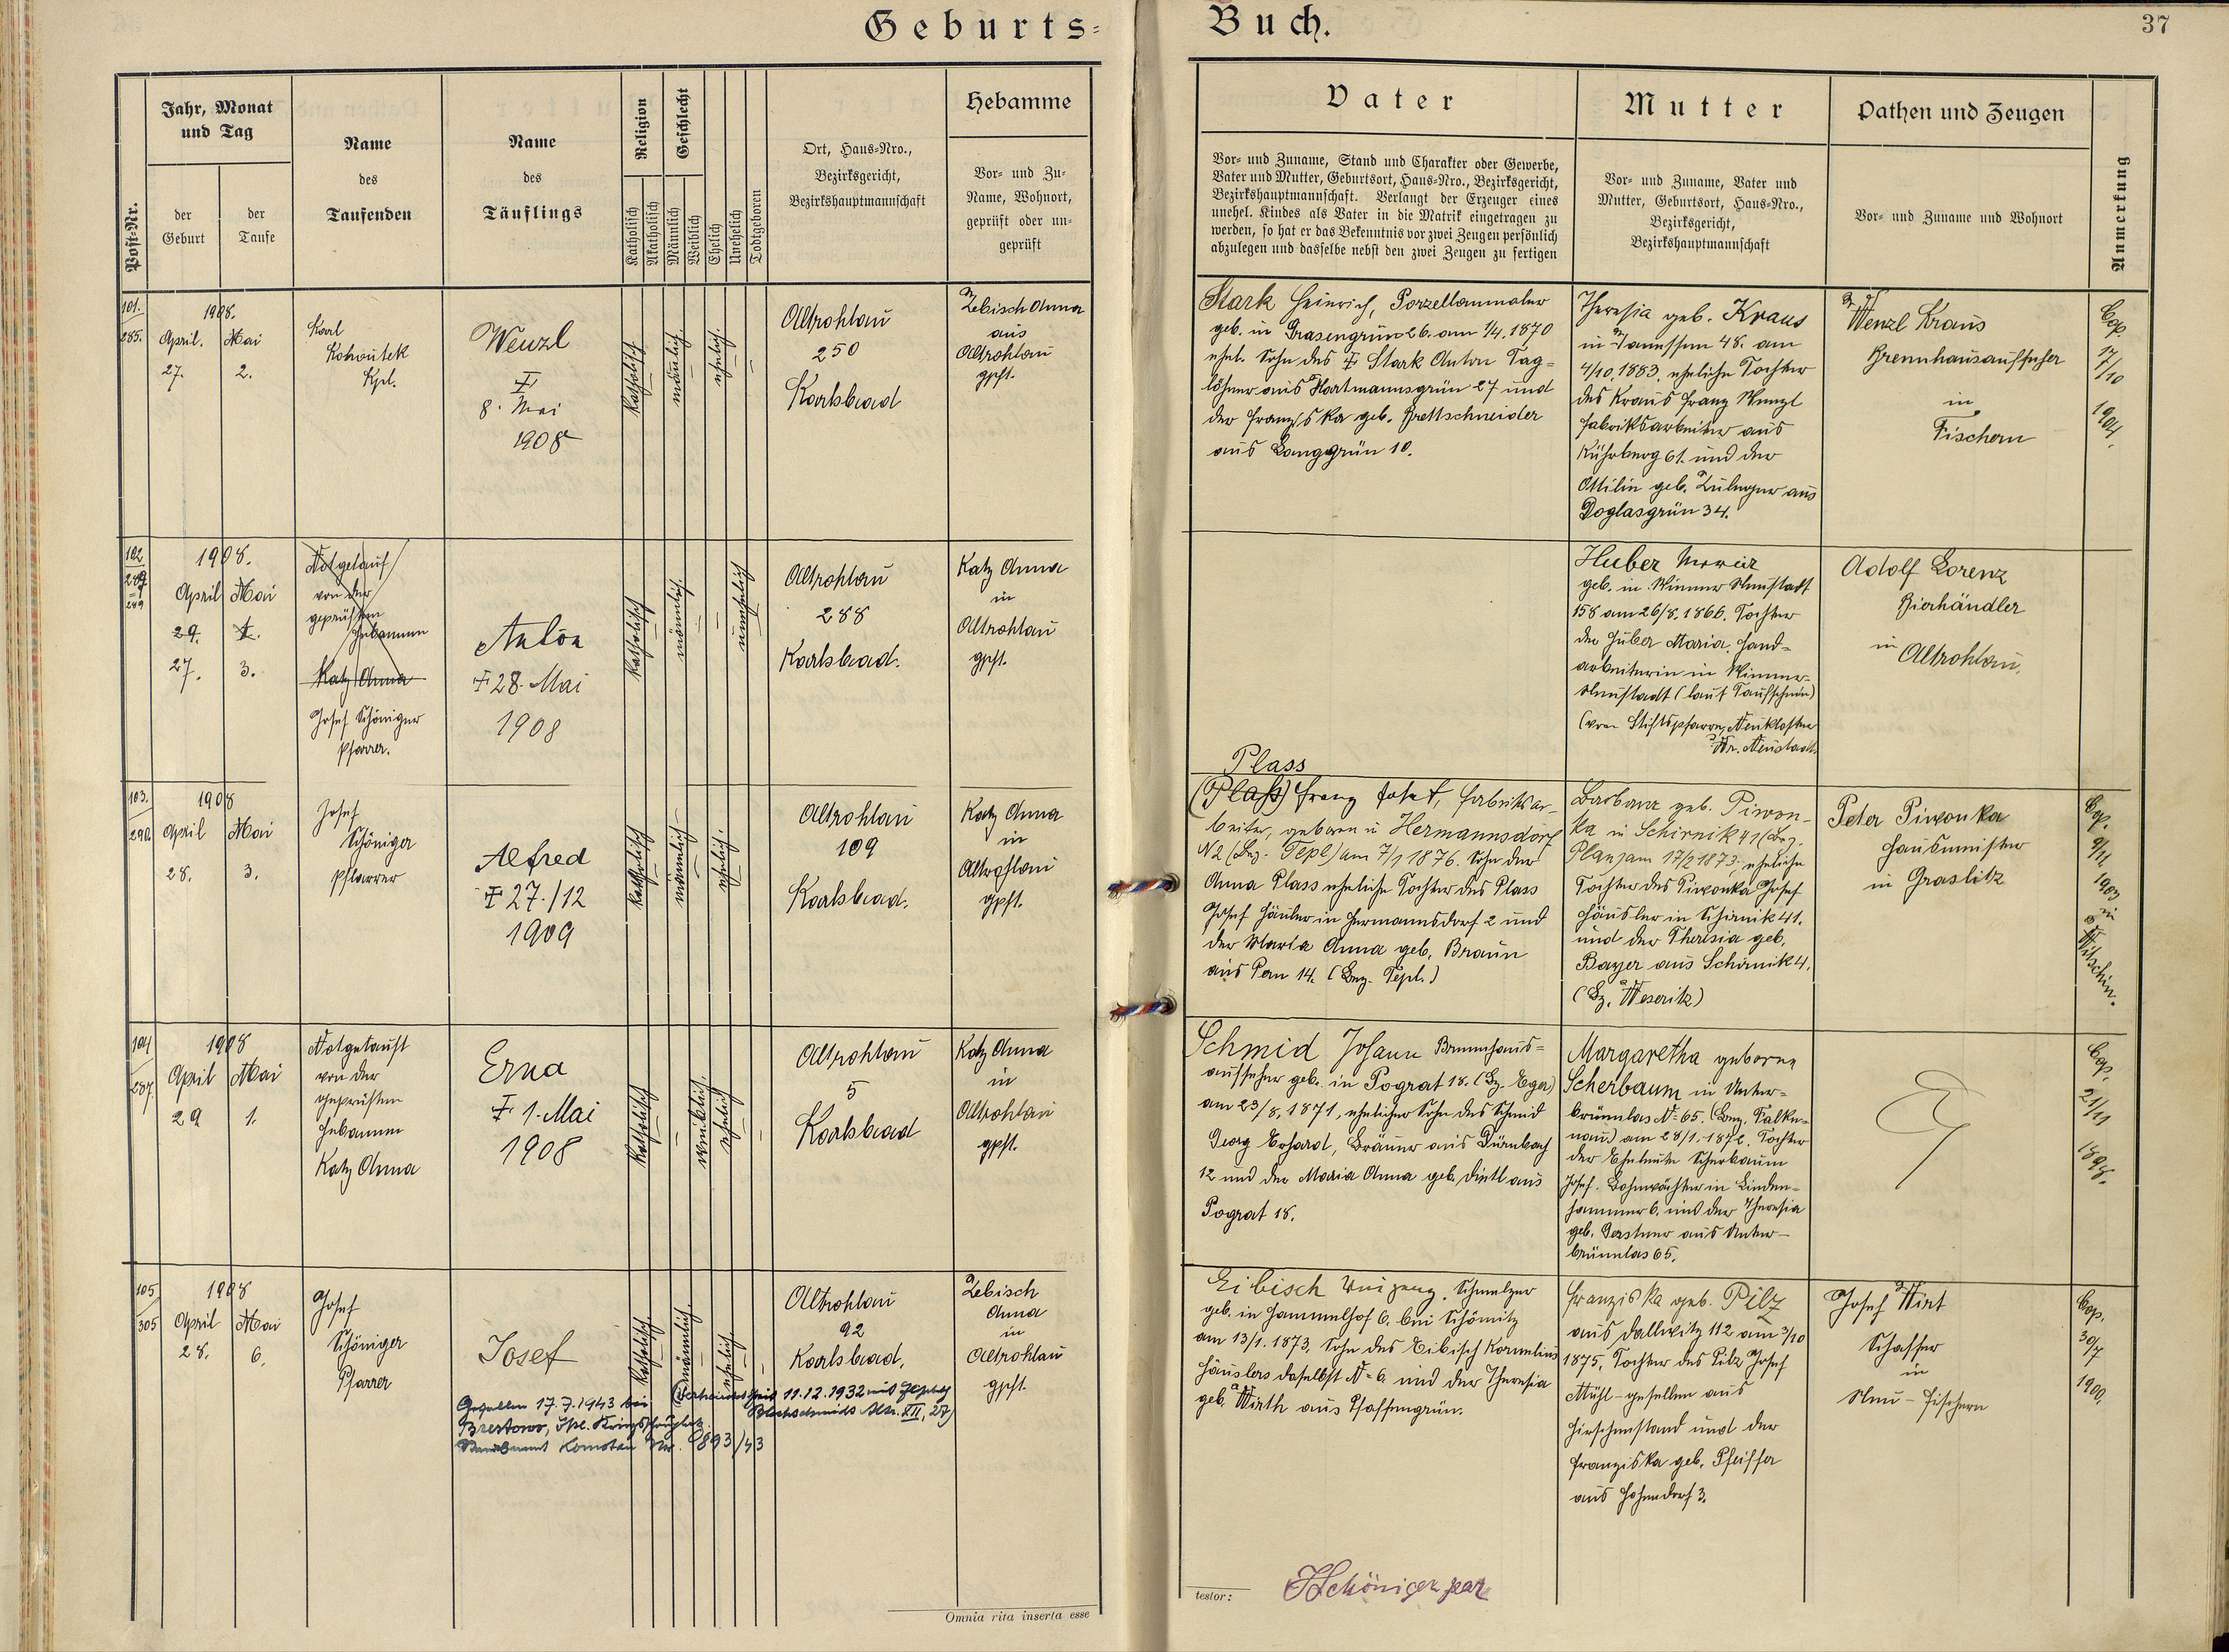 Geburts-
Buch.
37
Post-Nr.
Jahr, Monat
und Tag
der
Geburt
der
Taufe
Name
des
Taufenden
Name
des
Täuflings
Religion
Katholisch
Akatholisch
Geschlecht
Männlich
Weiblich
Ehelich
Unehelich
Todtgeboren
Ort, Haus-Nro.,
Bezirksgericht,
Bezirkshauptmannschaft
Hebamme
Vor- und Zu-
Name, Wohnort,
geprüft oder un-
geprüft
Vater
Vor- und Zuname, Stand und Charakter oder Gewerbe,
Vater und Mutter, Geburtsort, Haus-Nro., Bezirksgericht,
Bezirkshauptmannschaft. Verlangt der Erzeuger eines
unehel. Kindes als Vater in die Matrik eingetragen zu
werden, so hat er das Bekenntnis vor zwei Zeugen persönlich
abzulegen und dasselbe nebst den zwei Zeugen zu fertigen
Mutter
Vor- und Zuname, Vater und
Mutter, Geburtsort, Haus-Nro.,
Bezirksgericht,
Bezirkshauptmannschaft
Pathen und Zeugen
Vor- und Zuname und Wohnort
Anmerkung
101.
285.
1908.
April. Mai
27. 2.
Karl
Kohoutek
Kpl.
Wenzl
8. Mai
1908
Katholisch
männlich.
ehelich.
Altrohlau
250
Karlsbad
Zebisch Anna
aus
Altrohlau
gpft.
Stark Heinrich, Porzellanmaler
geb. in Grasengrün 26. am 1/4. 1870
ehel. Sohn des Stark Anton Tag-
löhner aus Hartmannsgrün 27 und
der Franziska geb. Brettschneider
aus Langgrün 10.
Theresia geb. Kraus
in 48. am
4/10. 1883, eheliche Tochter
des Kraus Franz Wenzl
Fabriksarbeiter aus
Kührberg 61. und der
Ottilie geb. Zuleger aus
Doglasgrün 34.
Wenzl Kraus
Brennhausaufseher
in
Fischern
Cop.
17/10
1904.
102
289
1908.
April Mai
29. 1.
27. 3.
Notgetauft
von der
geprüften
Hebamme
Katz Anna
Josef Schöniger
Pfarrer.
Anton
28. Mai
1908
Katholisch
männlich.
unehelich
Altrohlau
288
Karlsbad.
Katz Anna
in
Altrohlau
gpft.
Huber Maria
geb. in Wiener Neustadt
158 am 26/8. 1866. Tochter
der Huber Maria. Hand-
arbeiterin in Wiener-
Neustadt (laut Taufschein)
(vom Stiftspfarre Neukloster
Wr. Neustadt.
Adolf Lorenz
Bierhändler
in Altrohlau.
103.
290.
1908
April Mai
28. 3.
Josef
Schöniger
Pfarrer
Alfred
27./12
1909
Katholisch
männlich
ehelich.
Altrohlau
109
Karlsbad.
Katz Anna
in
Altrohlau
gpft.
Plass
(Plaß) Franz Josef, Fabriksar-
beiter, geboren in Hermannsdorf
N 2 (Bez. Tepl) am 7/1 1876. Sohn der
Anna Plass eheliche Tochter des Plass
Josef Häusler in Hermannsdorf 2 und
der Maria Anna geb. Braun
aus Pern 14. (Bez. Tepl.)
Barbara geb. Piwon-
ka in Schirnik 41 (Bez.
Plan) am 17/2 1873, eheliche
Tochter des Piwonka Josef
Häusler in Schirnik 41.
und der Theresia geb.
Bayer aus Schirnik 4.
(Bz. Weseritz)
Peter Piwonka
Hausmeister
in Graslitz
Cop.
9/11
1903
in
104
287.
1908
April Mai
29 1.
Notgetauft
von der
geprüften
Hebamme
Katz Anna
Erna
1. Mai
1908
Katholisch
weiblich.
ehelich
Altrohlau
5
Karlsbad
Katz Anna
in
Altrohlau
gpft.
Schmid Johann Brennhaus-
aufseher geb. in Pograt 18. (Bz. Eger)
am 23/8. 1871, ehelicher Sohn des Schmid
Georg Erhard, Bräuer aus Dürnbach
12 und der Maria Anna geb. Dietl aus
Pograt 18.
Margaretha geborne
Scherbaum in Unter-
brünnlas N: 65. (Bez. Falke-
nau) am 28/1. 1872. Tochter
der Eheleute Scherbaum
Josef. Bahnwächter in Linden-
hammer 6. und der Theresia
geb. Gerstner aus Unter-
brünnlas 65.
Cop.
21/11
1898.
105
305
1908
April Mai
28. 6.
Josef
Schöniger
Pfarrer
Josef
Gefallen 17.7.1943 bei
Standesamt Komotau Nr. 893/43
11.12.1932 mit
XII, 27)
Katholisch
männlich.
ehelich
Altrohlau
92
Karlsbad.
Zebisch
Anna
in
Altrohlau
gpft.
Eibisch Vinzenz, Schmelzer
geb. in Hammelhof 6. bei Schömitz
am 13/1. 1873, Sohn des Eibisch Kornelius
Häuslers daselbst N= 6. und der Theresia
geb. Wirth aus Pfaffengrün.
Franziska geb. Pilz
aus Dallwitz 112 am 3/10
1875. Tochter des Pilz Josef
Mühl-gesellen aus
Hirschenstand und der
Franziska geb. Pfeiffer
aus Hohendorf 3.
Josef Wirt
Schaffer
in
Neu-Fischern
Cop.
30/7
1900.
Omnia rita inserta esse
testor: JSchöniger par